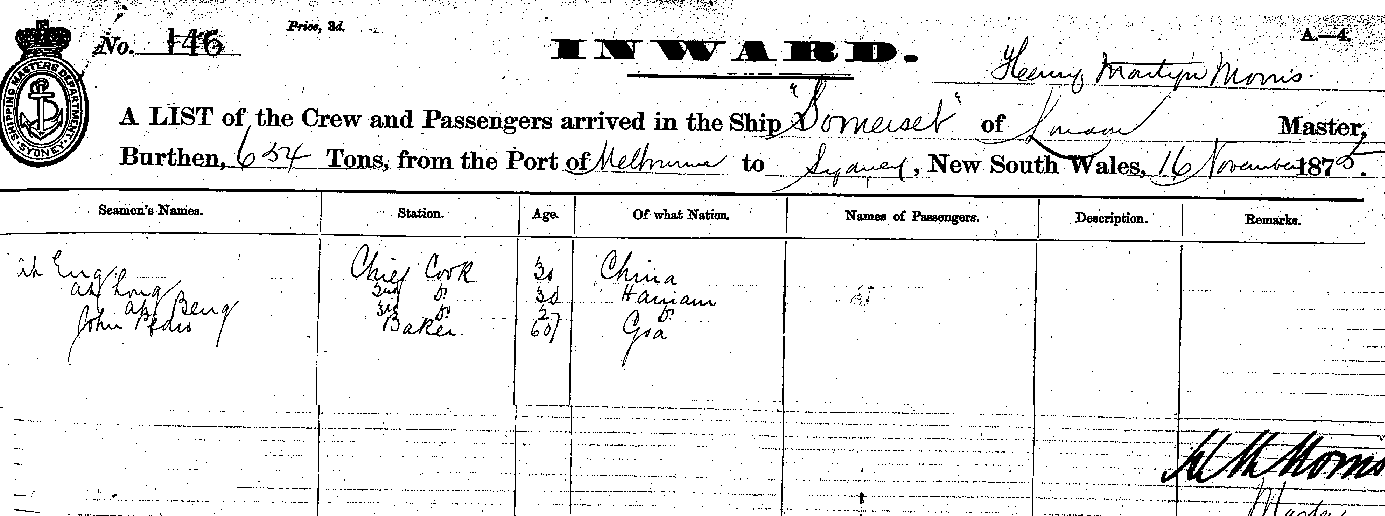 No. 146
Price, 3d.
INWARD.
A.—4.
Henry Martyn Morris.
SHIPPING MASTERS DEPARTMENT
SYDNEY
A LIST of the Crew and Passengers arrived in the Ship "Somerset" of London Master,
Burthen, 654 Tons, from the Port of Melbourne to Sydney, New South Wales, 16 November 1875.
Seamen's Names. Station. Age. Of what Nation. Names of Passengers. Description. Remarks.
Ah Eng Chief Cook 30 China
Ah Long 2nd Do 30 Hainam
Ah Beng 3rd Do Do
John Pedro Baker Goa
H M Morris
Master